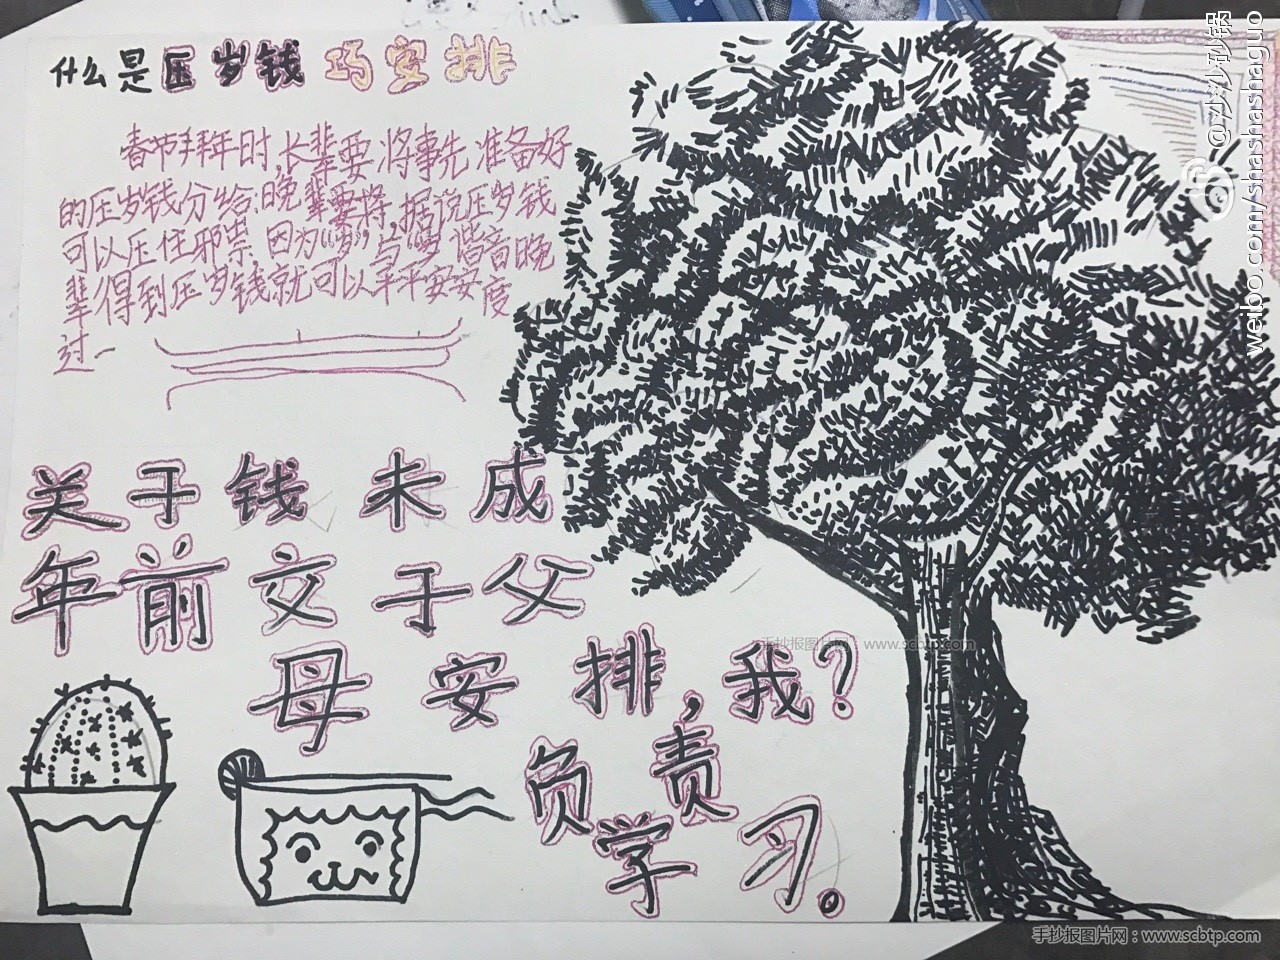 什么是压岁钱巧安排
春节拜年时,长辈要将事先准备好
的压岁钱分给晚辈要将,据说压岁钱
可以压住邪祟,因为“岁”与“岁”谐音晚
辈得到压岁钱就可以平平安安度
过一
关于钱未成
年前交于父
母安排,我?
负责
学习。
@沙沙砂锅
weibo.com/shashashaguo
手抄报图片网：www.scbtp.com
手抄报图片网：www.scbtp.com